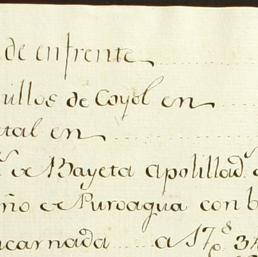 de enfrente
illos de Coyol en
tal en
de Bayeta apolillad.
ño de Puroagua con b
ncarnada a 17 p.s 3